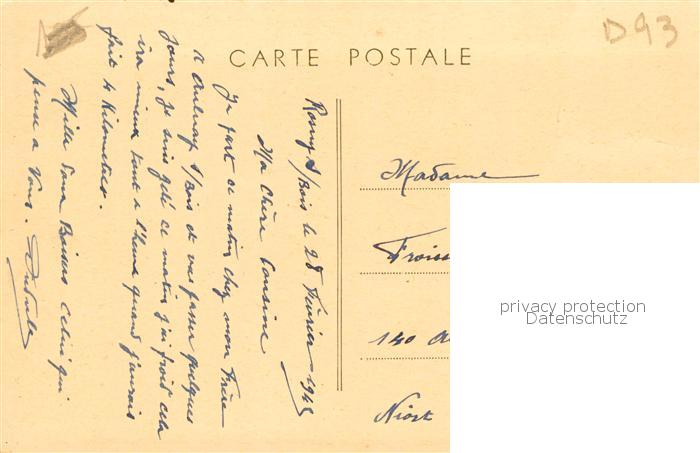 D93
CARTE POSTALE
Rosny s/Bois le 28 Février 1948
Ma Chère Cousine
Je part ce matin chez mon Frère
a Aulnay s/Bois et vais passer quelques
Jours, je suis gelé ce matin j'ai froid cela
ira mieux tant a l'heure quand j'aurais
fait 4 Kilometres.
Mille doux Baisers Celui qui
pense a Vous.
Madame
Froiss
140
Niort
privacy protection
Datenschutz